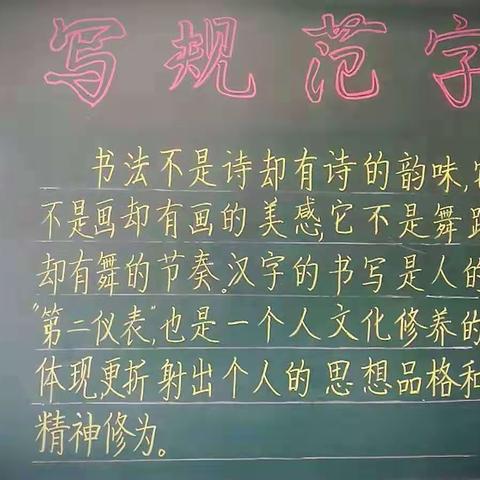 写规范字
书法不是诗却有诗的韵味,它
不是画却有画的美感,它不是舞蹈
却有舞的节奏。汉字的书写是人的
"第二仪表",也是一个人文化修养的
体现,更折射出个人的思想品格和
精神修为。